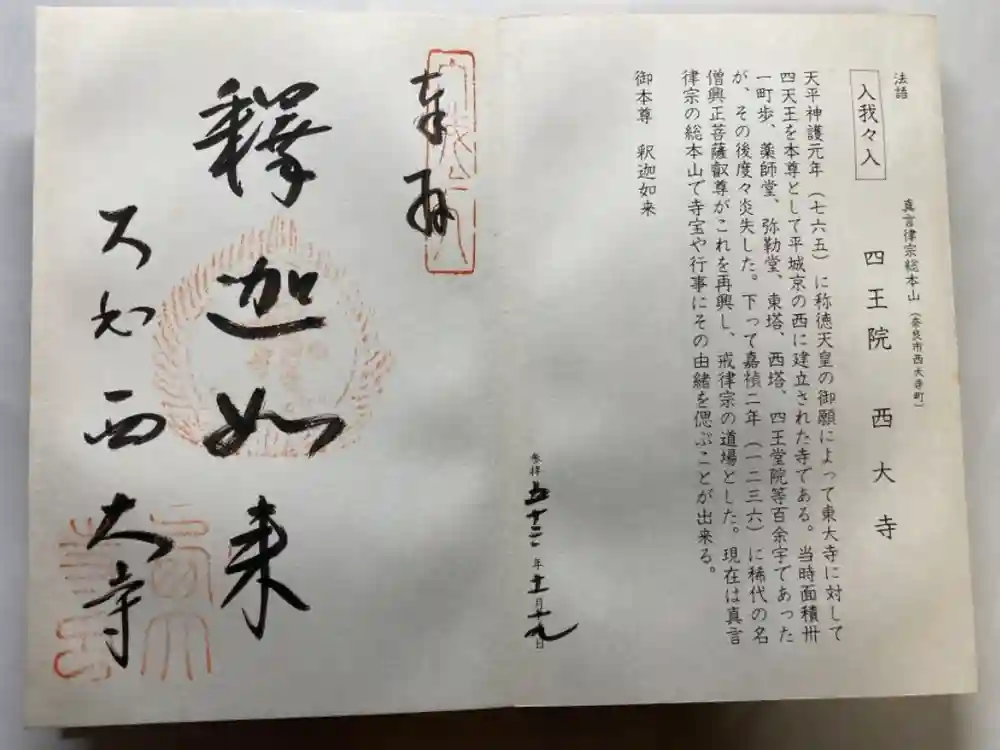 法語
入我々入
真言律宗総本山（奈良市西大寺町）
四王院 西大寺
天平神護元年（七六五）に称徳天皇の御願によって東大寺に対して
四天王を本尊として平城京の西に建立された寺である。当時面積卅
一町歩、薬師堂、弥勒堂、東塔、西塔、四王堂院等百余宇であった
が、その後度々炎失した。下って嘉禎二年（一二三六）に稀代の名
僧興正菩薩叡尊がこれを再興し、戒律宗の道場とした。現在は真言
律宗の総本山で寺宝や行事にその由緒を偲ぶことが出来る。
御本尊 釈迦如来
参拝五十二年十一月十九日
奉拝
釋迦如来
西大寺